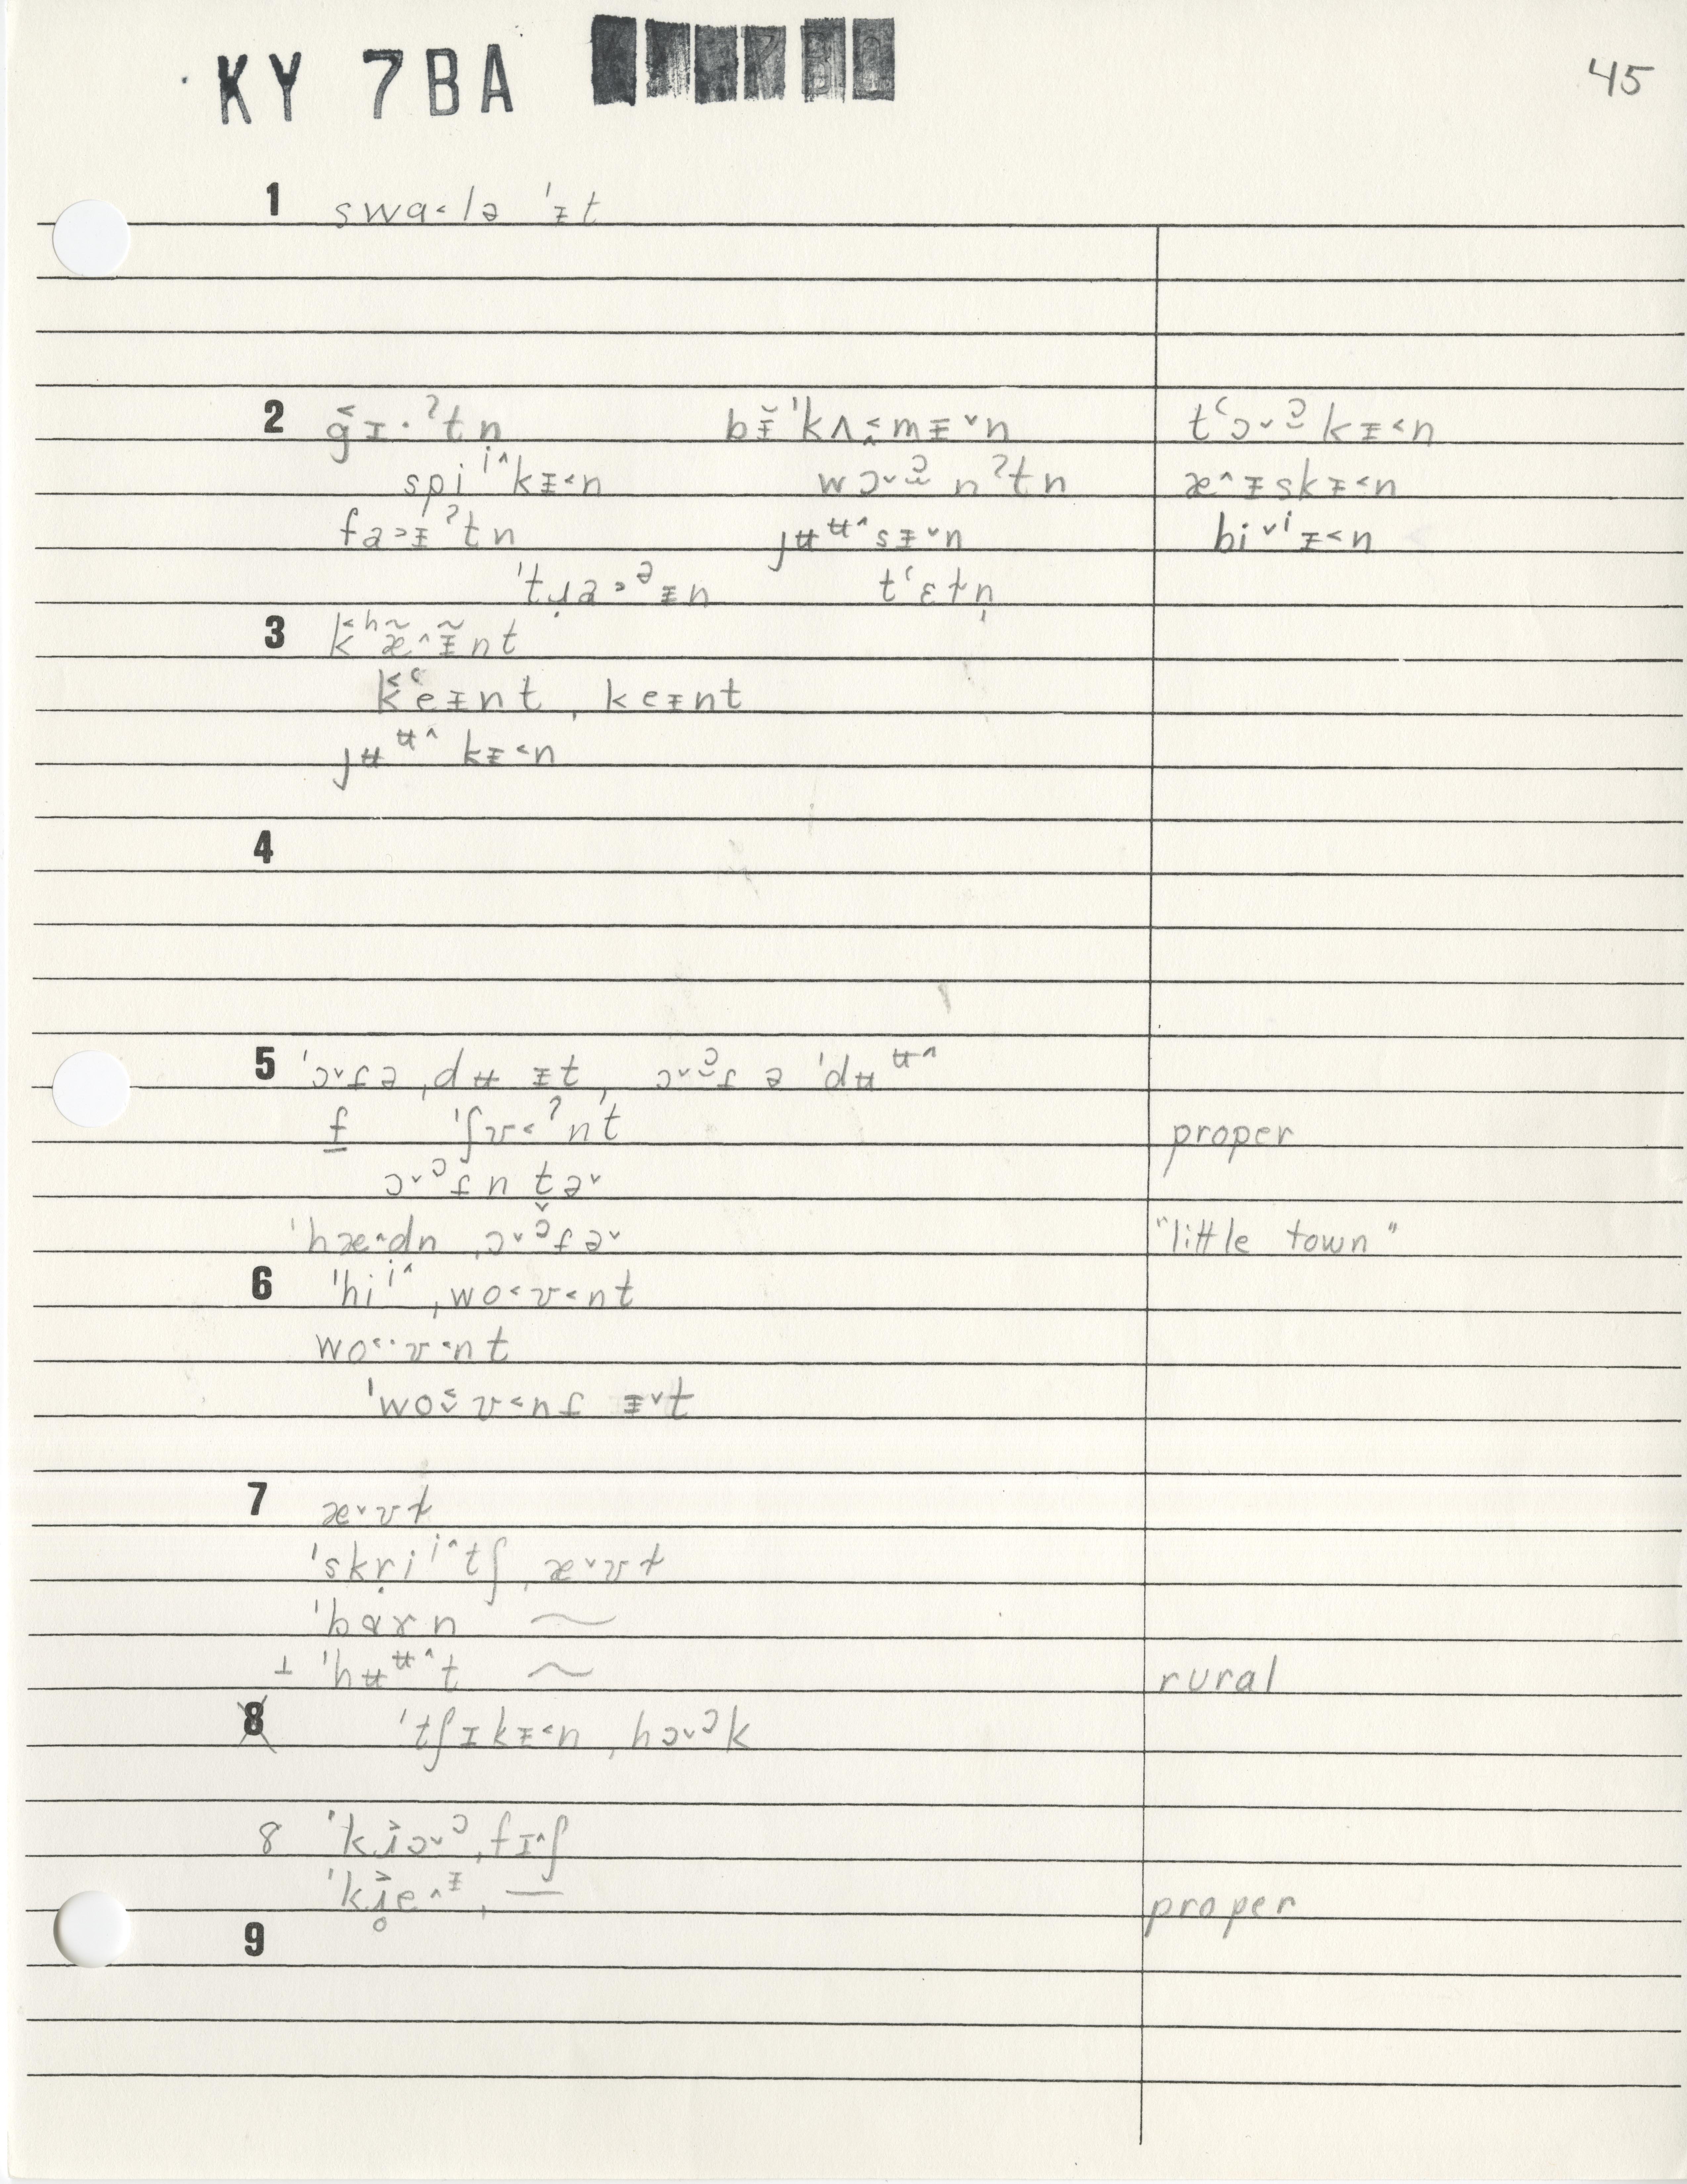 KY 7BA
45
1 swɑ˂lə ˈᵻt
2 g̑ɪ·ˀtn bᵻ̆ˈkʌ˂mᵻ˅n tʻɔ˅ɔ̯kᵻ˂n
spiiˆkᵻ˂n wɔ˅ɔ̯̃nˀtn æˆᵻskᵻ˂n
fa˃ᵻˀtn ȷʉʉˆsᵻ˅n bi˅iᵻ˂n
ˈtɹa˃əᵻn tʻɛɫn̩
3 k̑ʰæ̃ˆᵻ̃nt
k̑ʻeᵻnt, keᵻnt
ȷʉʉˆkᵻ˂n
4
5 ˈɔ˅fə ˌdʉ ᵻt, ɔ˅ɔ̯f ə ˈdʉʉˆ
f ˈʃʊ˂ˀnt proper
ɔ˅ɔfn tə˅
ˈhæˆdn ˌɔ˅ɔ̯fə˅ "little town"
6 ˈhiiˆ ˌwo˂ʊ˂nt
wo˂·ʊ˂nt
ˈwo˂ʊ˂nf ᵻ˅t
7 æ˅ʊɫ
ˈskr̩iiˆtʃ ˌæ˅ʊɫ
ˈbɑɤn ~
⊥ ˈhʉʉˆt ~ rural
8 ˈtʃɪkᵻ˂n ˌhɔ˅ɔk
8 ˈkɹɔ˅ɔ ˌfɪˆʃ
ˈkɹ̥eˆᵻ ˌ— proper
9